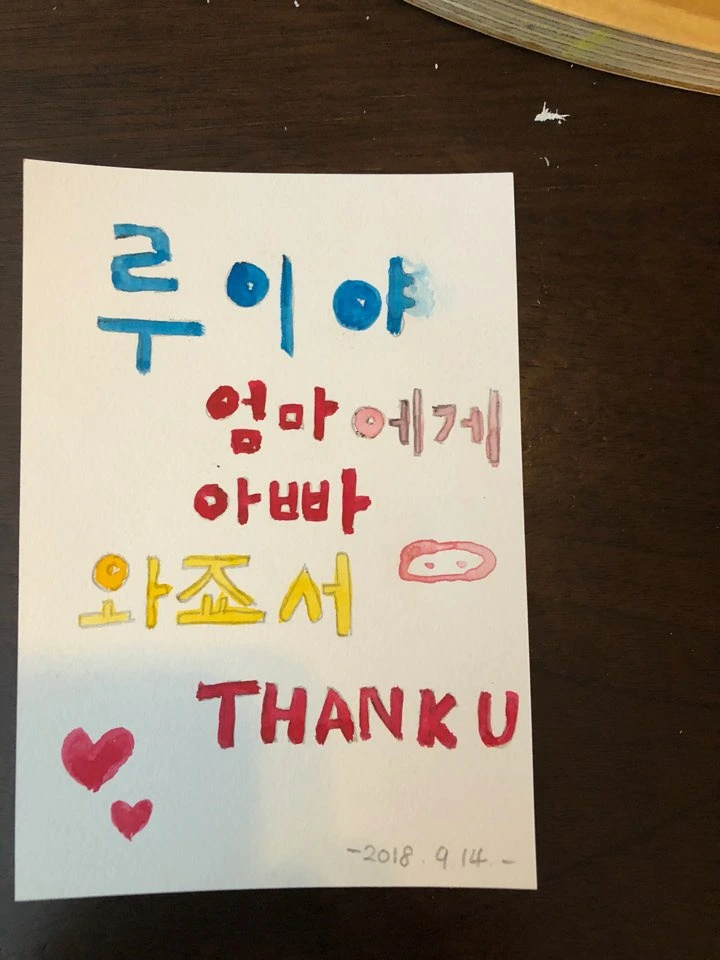 루이야
엄마에게
아빠
와죠서
THANK U
-2018. 9.14.-